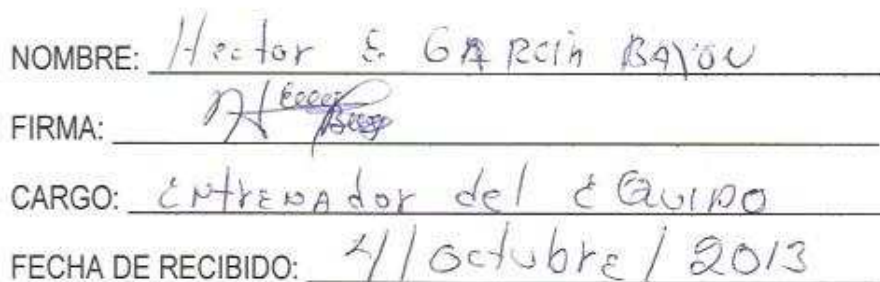 NOMBRE: Hector E. GARCIA BAYON
FIRMA:
CARGO: ENtrENAdor del EQUIPO
FECHA DE RECIBIDO: 4/Octubre/2013